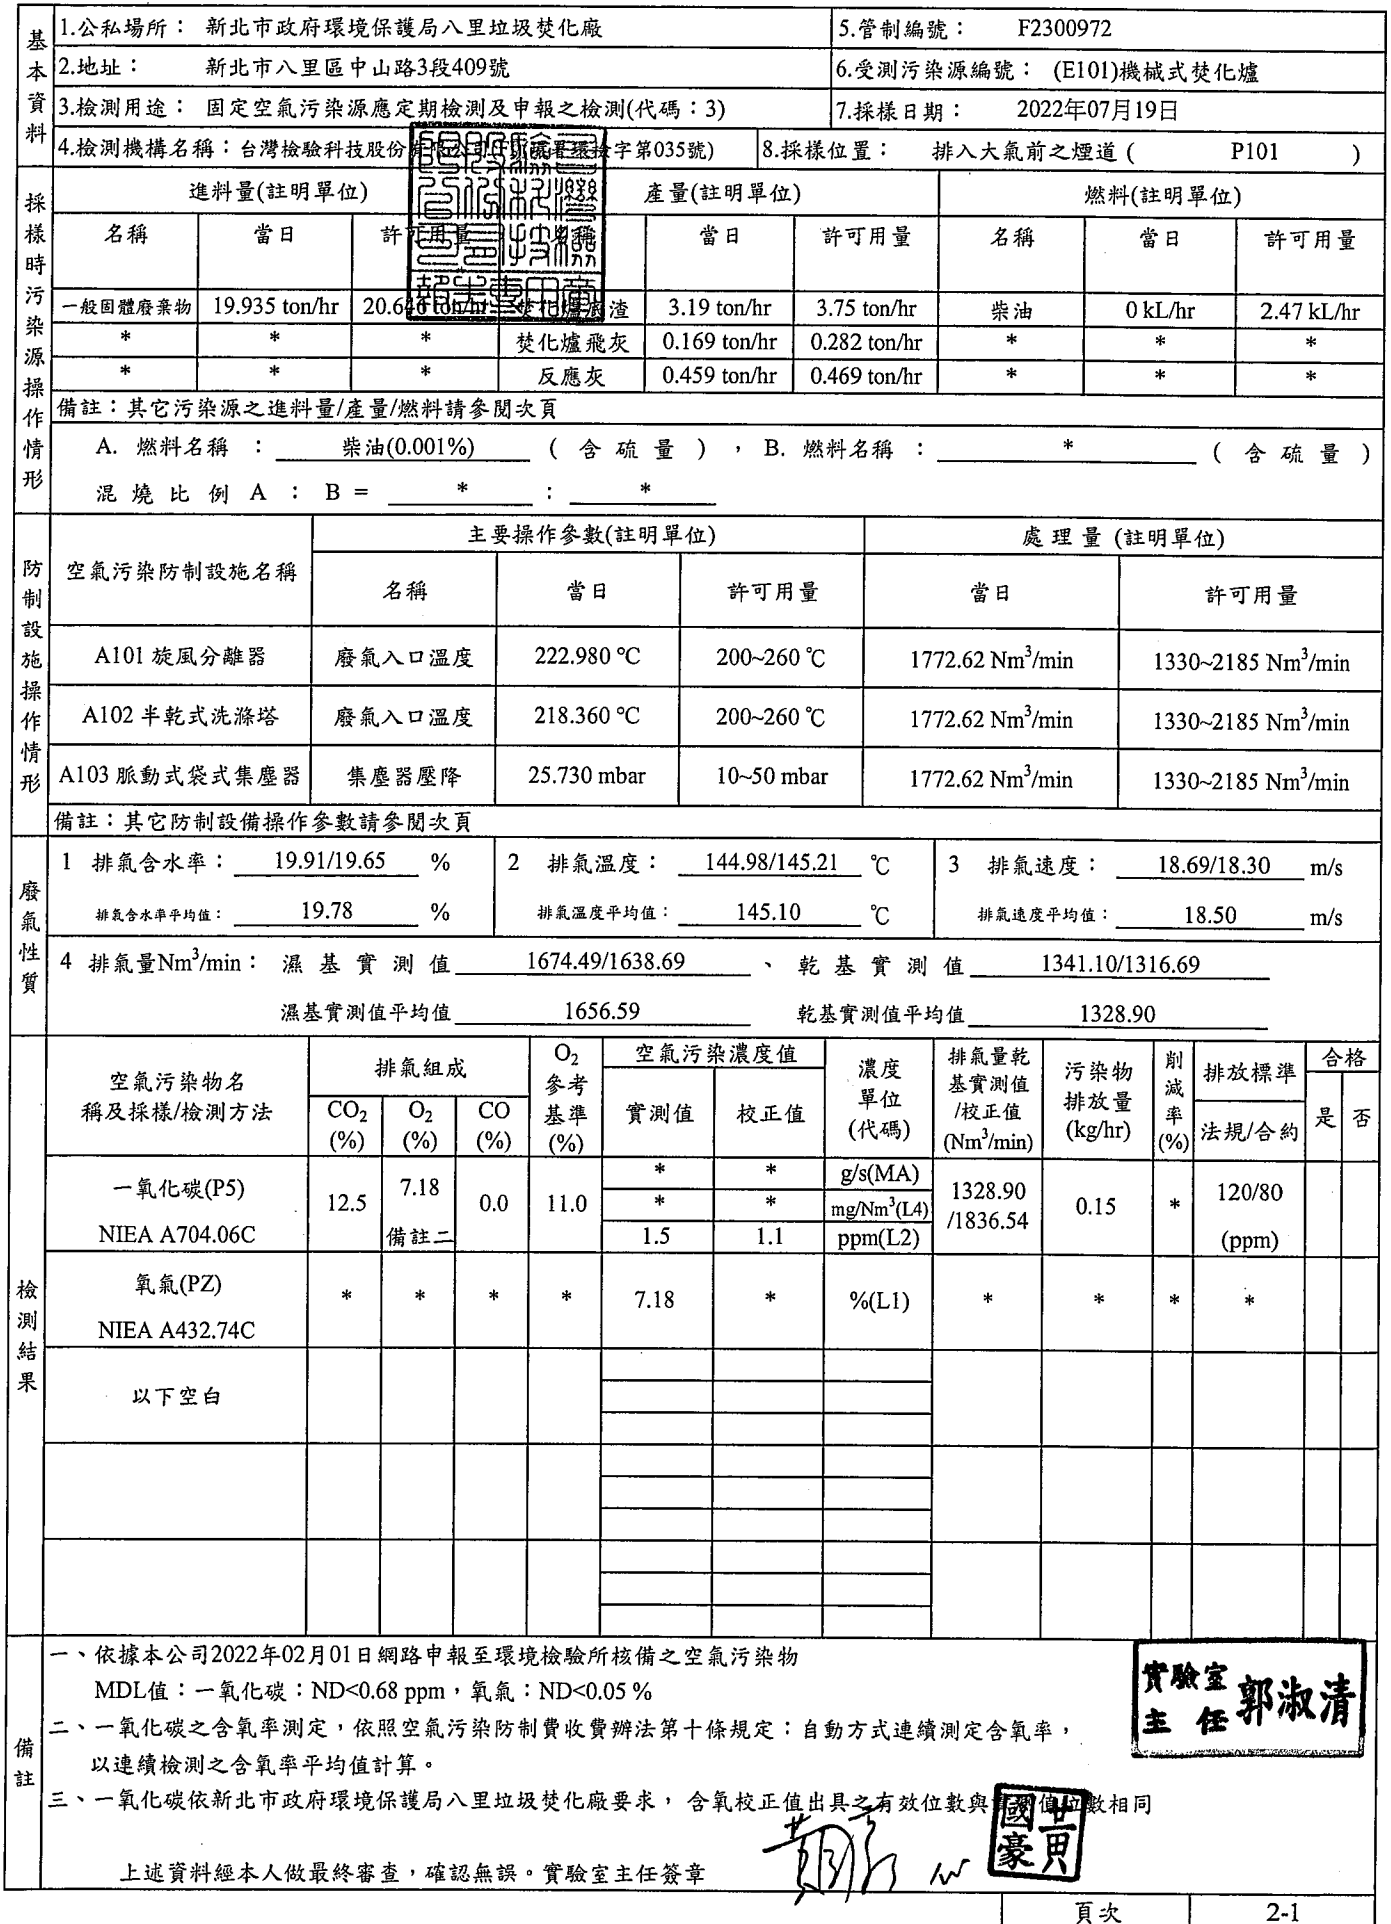 基本資料
1.公私場所： 新北市政府環境保護局八里垃圾焚化廠 5.管制編號： F2300972
2.地址： 新北市八里區中山路3段409號 6.受測污染源編號： (E101)機械式焚化爐
3.檢測用途： 固定空氣污染源應定期檢測及申報之檢測(代碼：3) 7.採樣日期： 2022年07月19日
4.檢測機構名稱：台灣檢驗科技股份 環檢字第035號) 8.採樣位置： 排入大氣前之煙道 ( P101 )
採樣時污染源操作情形
進料量(註明單位) 產量(註明單位) 燃料(註明單位)
名稱 當日 許可用量 名稱 當日 許可用量 名稱 當日 許可用量
一般固體廢棄物 19.935 ton/hr 20.646 ton/hr 焚化爐底渣 3.19 ton/hr 3.75 ton/hr 柴油 0 kL/hr 2.47 kL/hr
* * * 焚化爐飛灰 0.169 ton/hr 0.282 ton/hr * * *
* * * 反應灰 0.459 ton/hr 0.469 ton/hr * * *
備註：其它污染源之進料量/產量/燃料請參閱次頁
A. 燃料名稱 ： 柴油(0.001%) ( 含 硫 量 ) ， B. 燃料名稱 ： * ( 含 硫 量 )
混 燒 比 例 A ： B = * ： *
防制設施操作情形
空氣污染防制設施名稱 主要操作參數(註明單位) 處 理 量 (註明單位)
名稱 當日 許可用量 當日 許可用量
A101 旋風分離器 廢氣入口溫度 222.980 ℃ 200~260 ℃ 1772.62 Nm³/min 1330~2185 Nm³/min
A102 半乾式洗滌塔 廢氣入口溫度 218.360 ℃ 200~260 ℃ 1772.62 Nm³/min 1330~2185 Nm³/min
A103 脈動式袋式集塵器 集塵器壓降 25.730 mbar 10~50 mbar 1772.62 Nm³/min 1330~2185 Nm³/min
備註：其它防制設備操作參數請參閱次頁
廢氣性質
1 排氣含水率： 19.91/19.65 % 2 排氣溫度： 144.98/145.21 ℃ 3 排氣速度： 18.69/18.30 m/s
排氣含水率平均值： 19.78 % 排氣溫度平均值： 145.10 ℃ 排氣速度平均值： 18.50 m/s
4 排氣量Nm³/min： 濕 基 實 測 值 1674.49/1638.69 、 乾 基 實 測 值 1341.10/1316.69
濕基實測值平均值 1656.59 乾基實測值平均值 1328.90
檢測結果
空氣污染物名稱及採樣/檢測方法 排氣組成 O₂參考基準(%) 空氣污染濃度值 濃度單位(代碼) 排氣量乾基實測值/校正值(Nm³/min) 污染物排放量(kg/hr) 削減率(%) 排放標準 合格
CO₂(%) O₂(%) CO(%) 實測值 校正值 法規/合約 是 否
* * g/s(MA)
一氧化碳(P5) 12.5 7.18 0.0 11.0 * * mg/Nm³(L4) 1328.90/1836.54 0.15 * 120/80
NIEA A704.06C 備註二 1.5 1.1 ppm(L2) (ppm)
氧氣(PZ) * * * * 7.18 * %(L1) * * * *
NIEA A432.74C
以下空白
備註
一、依據本公司2022年02月01日網路申報至環境檢驗所核備之空氣污染物
MDL值：一氧化碳：ND<0.68 ppm，氧氣：ND<0.05 %
二、一氧化碳之含氧率測定，依照空氣污染防制費收費辦法第十條規定：自動方式連續測定含氧率，
以連續檢測之含氧率平均值計算。
三、一氧化碳依新北市政府環境保護局八里垃圾焚化廠要求， 含氧校正值出具之有效位數與 數相同
實驗室主任 郭淑清
黃國豪
上述資料經本人做最終審查，確認無誤。實驗室主任簽章
頁次 2-1